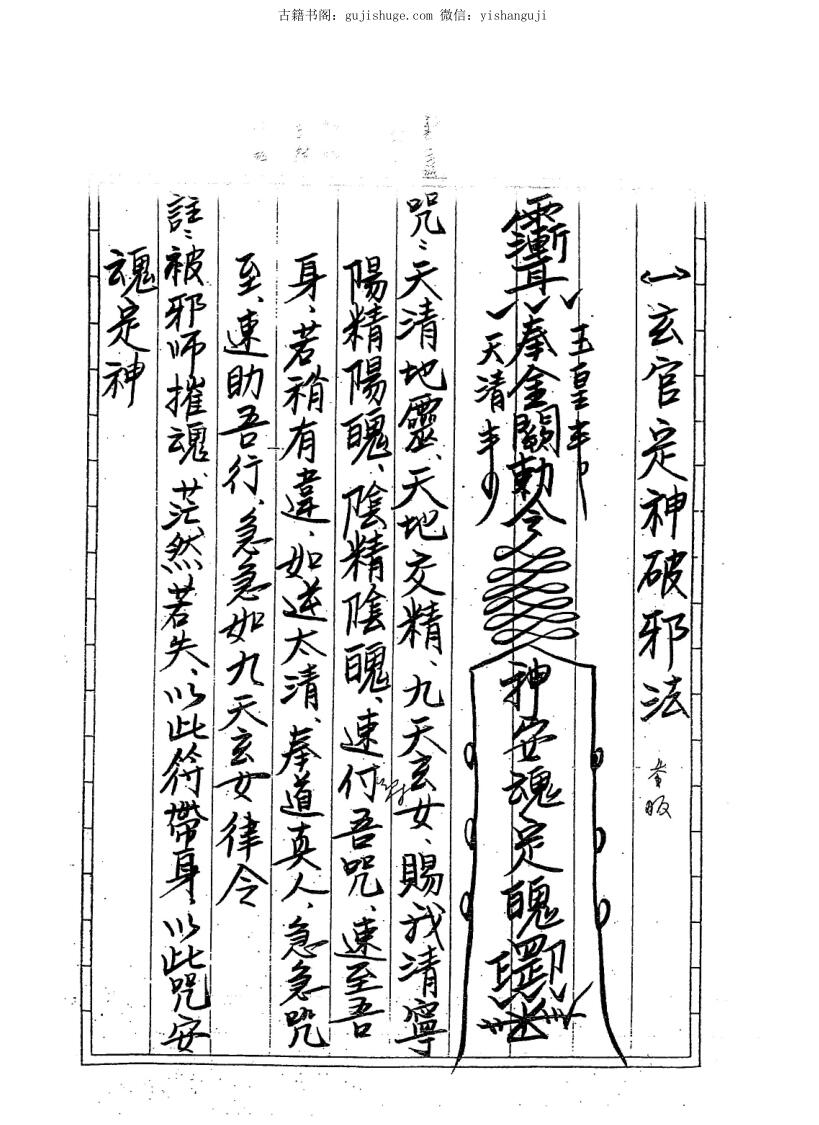 古籍书阁：gujishuge.com 微信：yishanguji
(一)玄官定神破邪法 黄版
玉皇
奉金闕勅令
天清
神安魂定魄罡
咒：天清地靈、天地交精、九天玄女、賜我清寧
陽精陽魄、陰精陰魄、速付吾咒、速至吾
身、若稍有違、如逆太清、奉道真人、急急咒
至、速助吾行、急急如九天玄女律令
註：被邪师摧魂、茫然若失、以此符帶身、以此咒安
魂定神